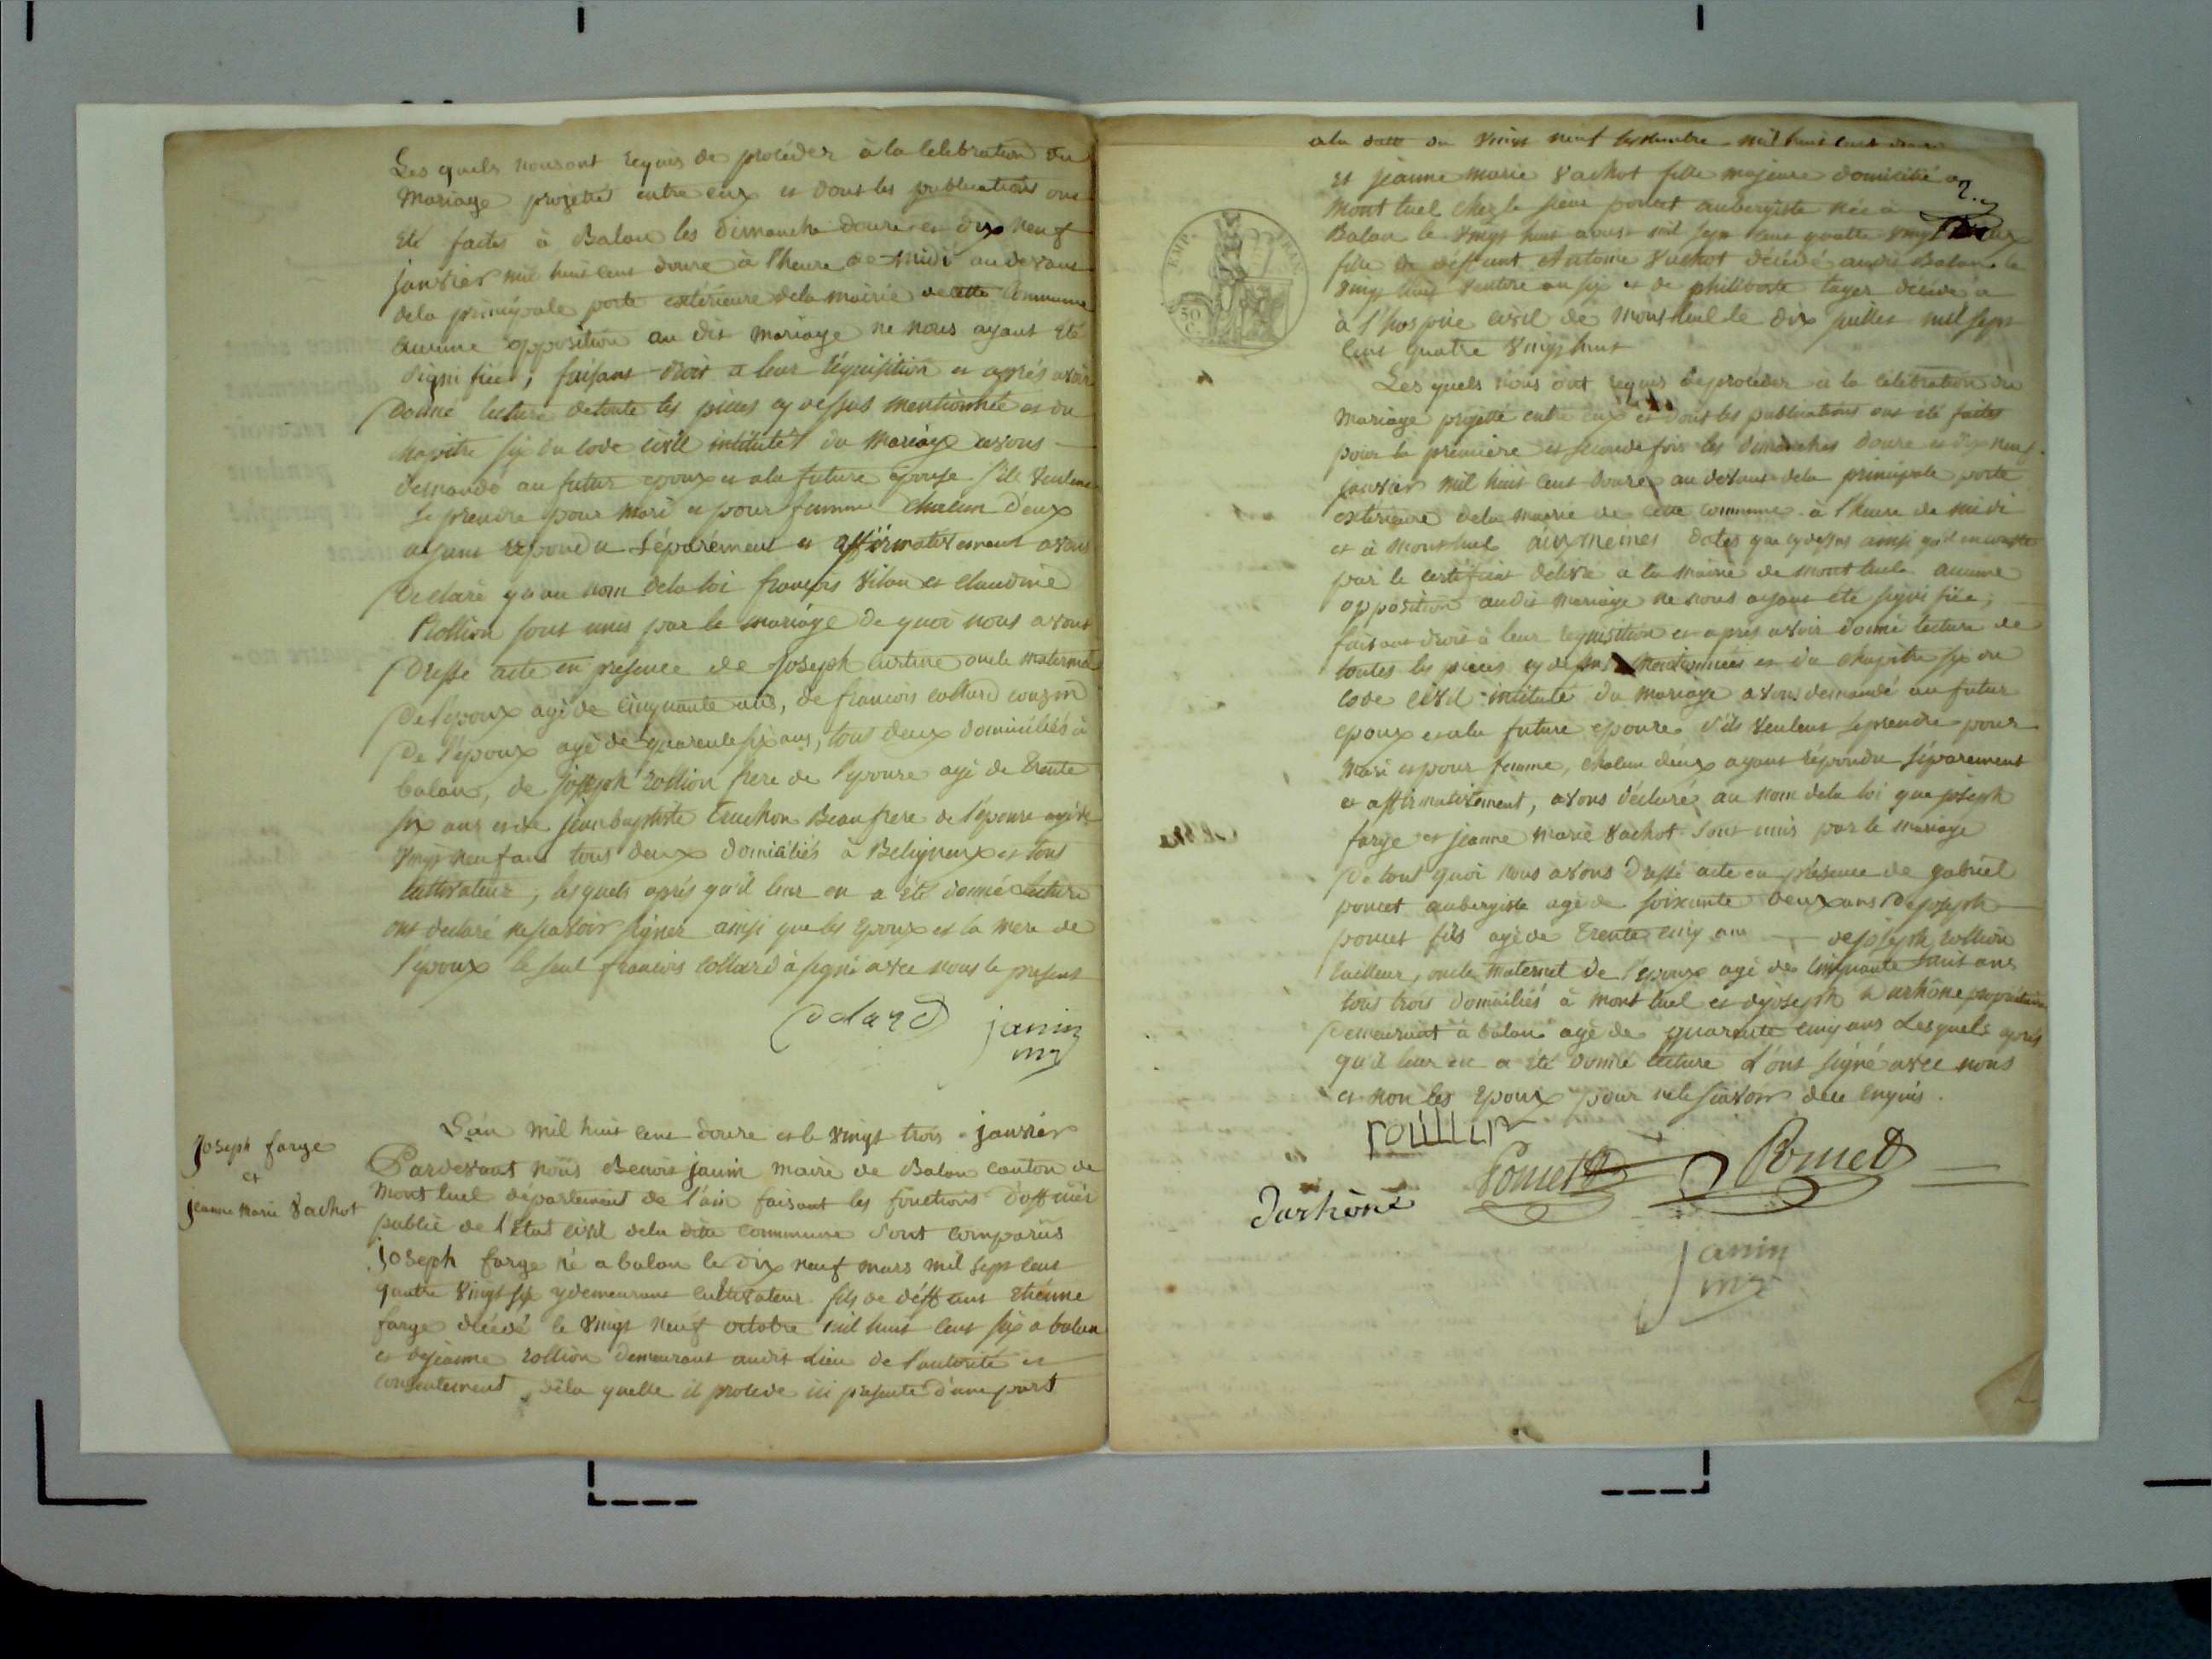 Les quels nous ont requis de procéder à la celebration du
Mariage projetté entre eux et dont les publications ont
été faites à Balan les dimanche douze et dix neuf
janvier mil huit cent douze à l'heure de midi au devant
de la principale porte extérieure dela mairie de cette Commune
aucune opposition au dit mariage ne nous ayant été
signifiée; faisant droit a leur réquisition et après avoir
donné lecture de toute les pieces cy dessus mentionnée et du
chapitre six du code civil intitulé du Mariage avons
demandé au futur epoux et ala future epouse s'ils veulent
se prendre pour mari et pour femme chacun d'eux
ayant repondu séparément et affirmativement avons
declaré qu'au nom dela loi françois Vilan et claudine
Rollion sont unis par le mariage de quoi nous avons
dressé acte en presence de Joseph curtine oncle maternel
de l'epoux agé de cinquante ans, de francois collard couzin
De l'époux agé de quarente six ans, tout deux domiciliés à
balan, de joseph rollion frere de l'epouse agé de trente
six ans et de jean baptiste truchon Beau frere de l'épouse agé de
vingt neuf ans tous deux domiciliés à Beligneux et tous
cultivateur, les quels après qu'il leur en a été donné lecture
ont declaré ne savoir signer ainsi que les Epoux et la mere de
l'epoux le seul francois Collard à signé avec nous le present
Colard janin
mre
Joseph farge
et
jeanne Marie Vachot
L'an mil huit cent douze et le vingt trois janvier
Pardevant nous Benoit janin maire de Balan canton de
Montluel département de l'ain faisant les fonctions d'officier
public de l'état civil dela ditte commune sont comparus
joseph farge né a balan le dix neuf mars mil sept cent
quatre vingt six y demeurant cultivateur fils de déffunt Etienne
farge décédé le vingt neuf octobre mil huit cent six a balan
et de jeanne rollion demeurant audit Lieu de l'autorité et
consentement de la quelle il procede ici presente d'une part
ala date du vingt neuf septembre mil huit cent
et jeanne marie Vachot fille majeure domicilié a
Montluel chez le sieur poncet aubergiste née à
Balan le vingt huit aoust mil sept cent quatre vingt
fille de deffunt Antoine Vachot décédé audit Balan le
vingt huit ventose an six et de philiberte tayer décédé a
à l'hospice civil de Montluel le dix juillet mil sept
cent quatre vingt huit
EMP. FRAN.
50
C.
Les quels nous ont requis de procéder à la célébration du
Mariage projetté entre eux et dont les publications ont été faites
pour la première et seconde fois les dimanches douze et dix neuf
janvier mil huit cent douze au devant dela principale porte
extérieure dela mairie de cette commune à l'heure de midi
et à Montluel aux mêmes dates que cydessus ainsi qu'il en conste
par le certificat délivré a la mairie de montluel aucune
opposition audit mariage ne nous ayant été signifiée;
faisant droit à leur requisition et après avoir donné lecture de
toutes les pieces cy dessus mentionnées et du chapitre six du
code civil intitulé du mariage avons demandé au futur
epoux et ala future epouse s'ils veulent se prendre pour
mari et pour femme, chacun d'eux ayant répondu séparement
et affirmativement, avons déclaré au nom dela loi que joseph
farge et jeanne marie Vachot sont unis par le mariage
De tout quoi nous avons dressé acte en présence de gabriel
poncet aubergiste agé de soixante deux ans De joseph
poncet fils agé de trente cinq ans de joseph rollion
tailleur, oncle maternel de l'epoux agé de cinquante huit ans
tous trois domiciliés à montluel et de joseph Durhône propriétaire
Demeurant à balan agé de quarante cinq ans Lesquels après
qu'il leur en a été donné lecture L'ont signé avec nous
et non les Epoux pour ne le sçavoir de ce enquis.
Poncet Poncet
Durhône
Janin
mre